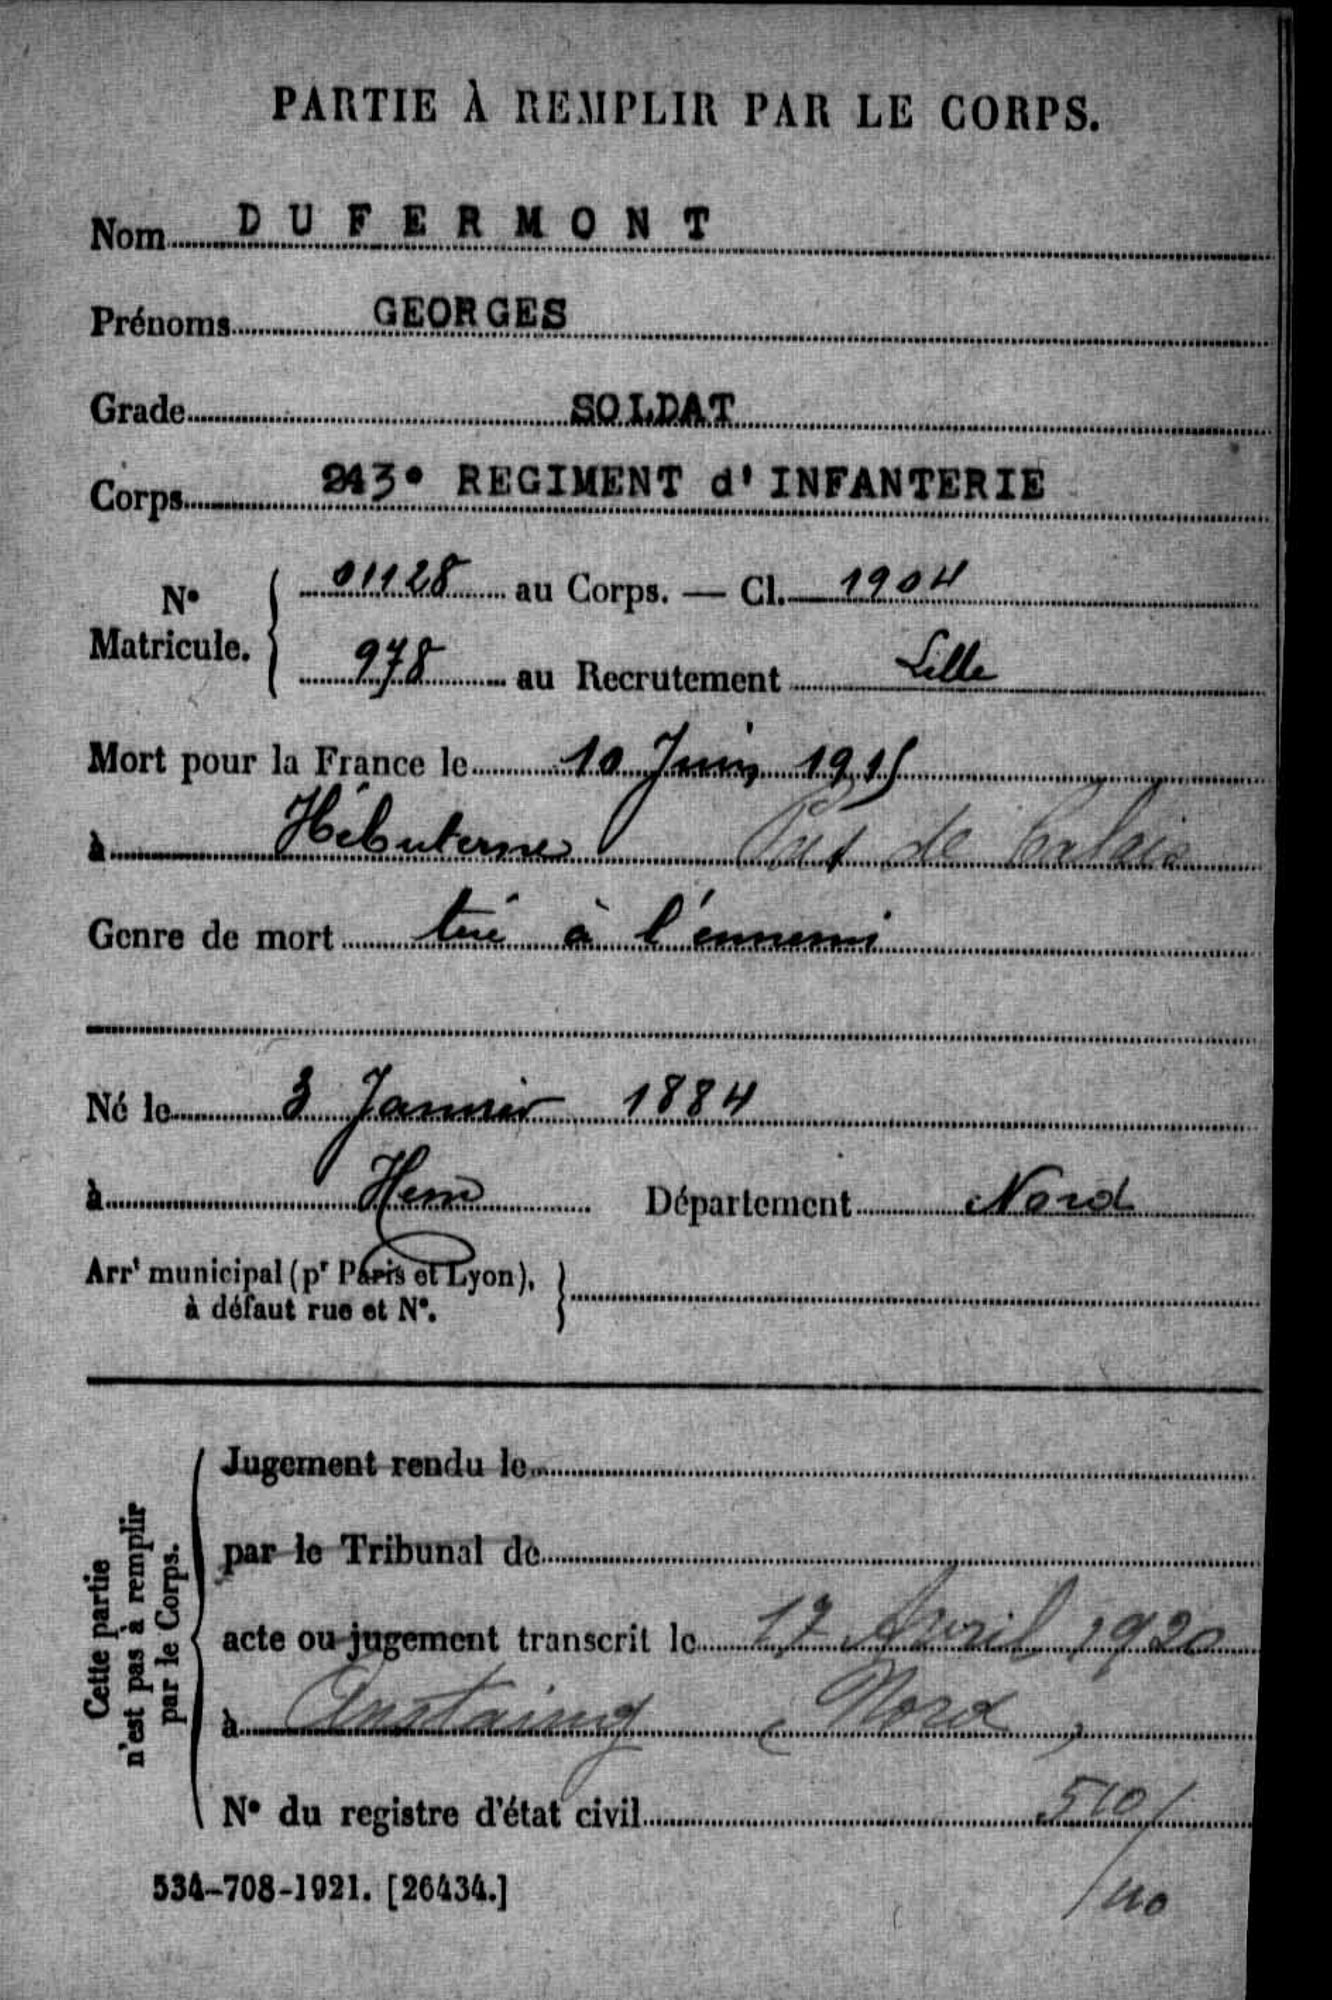 PARTIE À REMPLIR PAR LE CORPS.
Nom DUFERMONT
Prénoms GEORGES
Grade SOLDAT
Corps 243e REGIMENT d'INFANTERIE
N° Matricule. 01128 au Corps. — Cl. 1904
978 au Recrutement Lille
Mort pour la France le 10 Juin 1915
à Hébuterne Pas de Calais
Genre de mort tué à l'ennemi
Né le 3 Janvier 1884
à Hem Département Nord
Arrt municipal (pr Paris et Lyon),
à défaut rue et N°.
Cette partie
n'est pas à remplir
par le Corps.
Jugement rendu le
par le Tribunal de
acte ou jugement transcrit le 17 Avril 1920
à Anstaing (Nord)
N° du registre d'état civil
534-708-1921. [26434.]